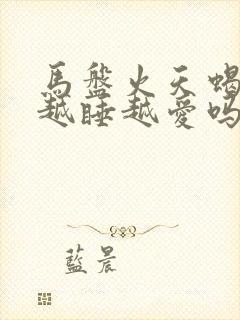 馬盤火天蝎
越睡越愛嗎
藍晨